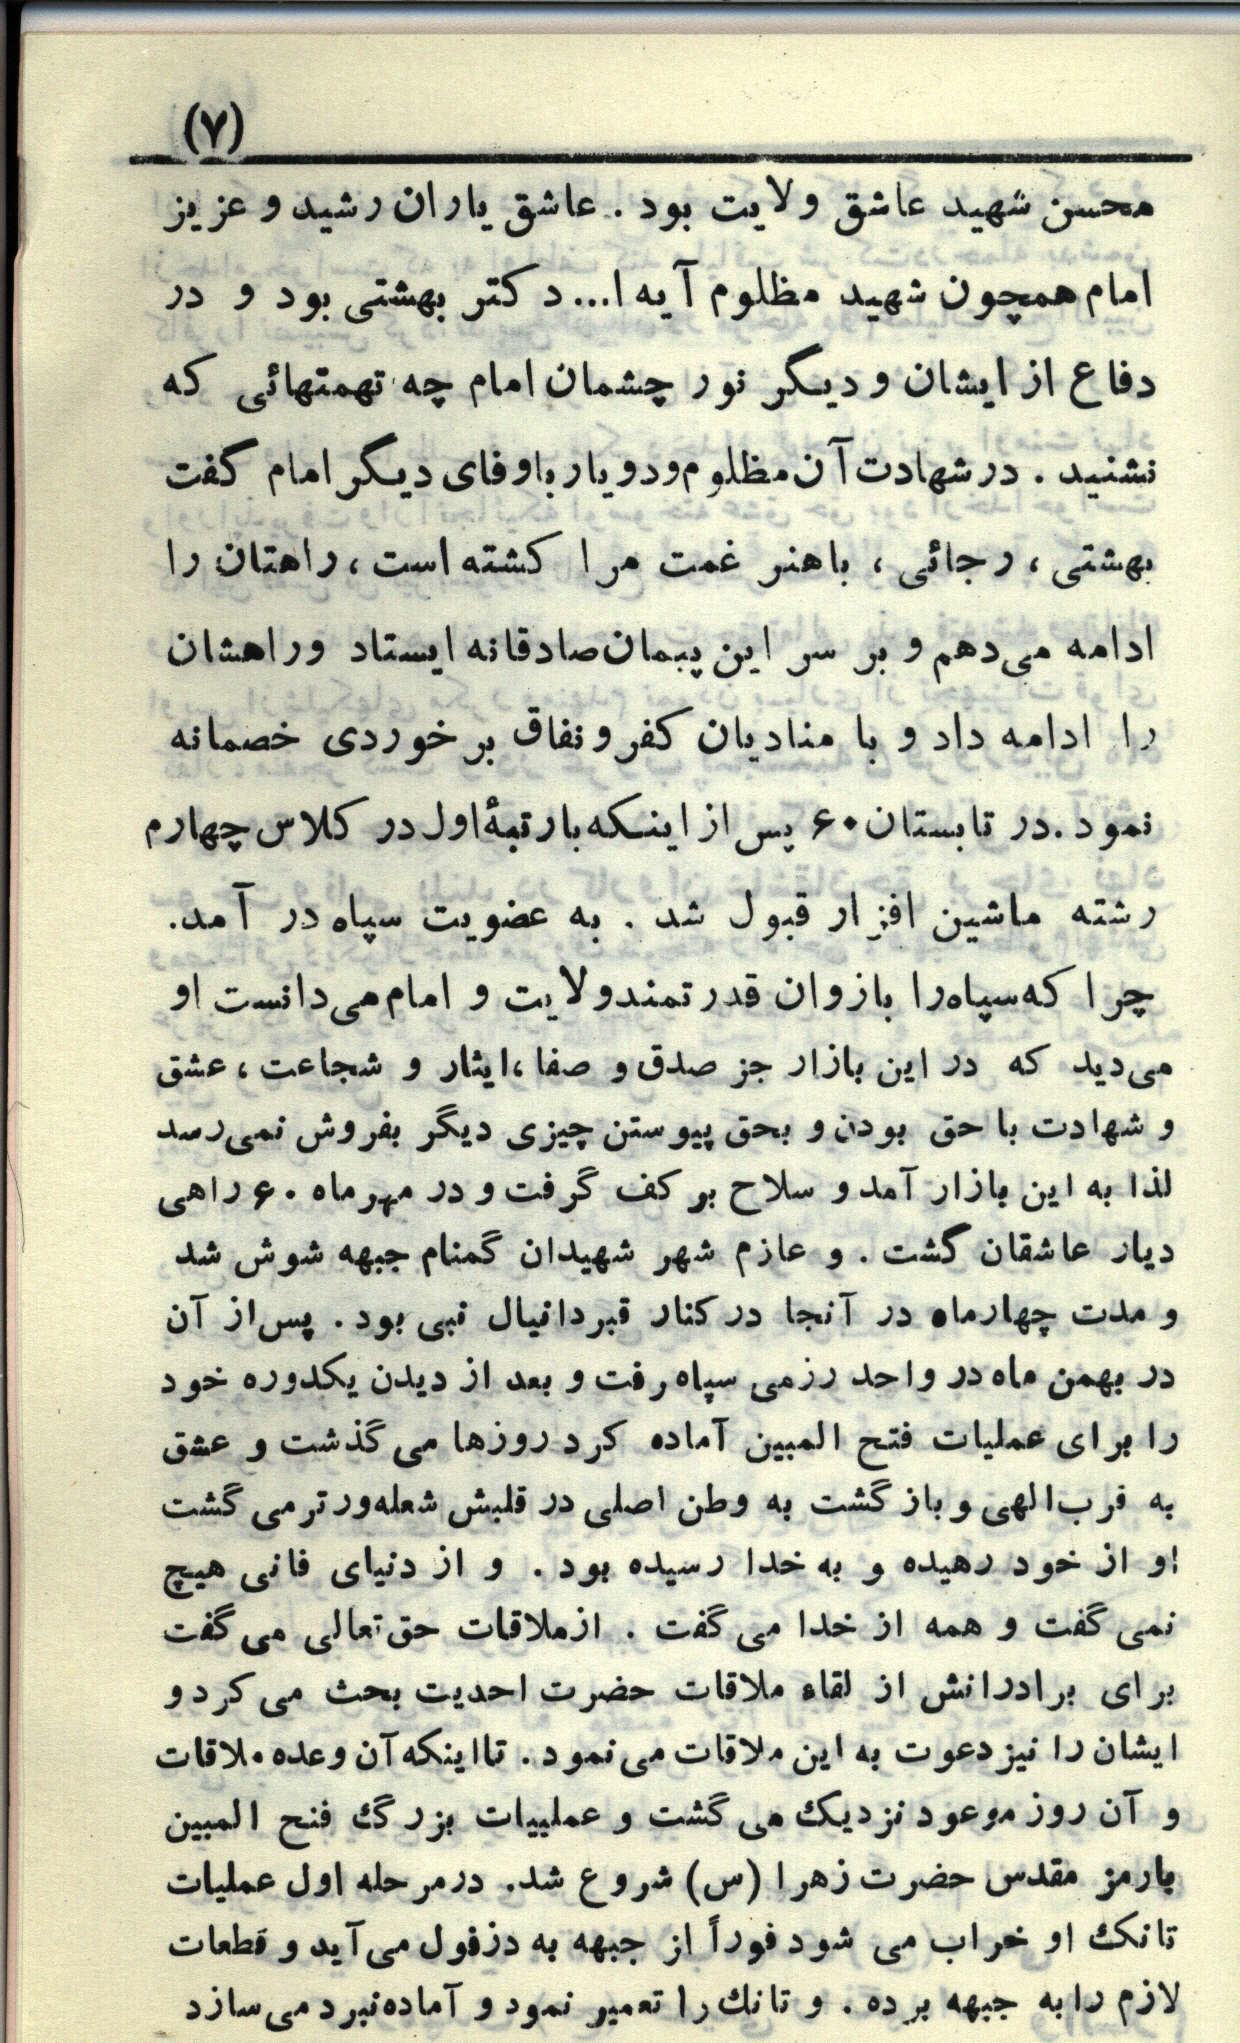 (۷)
محسن شهید عاشق ولایت بود . عاشق یاران رشید و عزیز
امام همچون شهید مظلوم آیه ا... دکتر بهشتی بود و در
دفاع از ایشان و دیگر نور چشمان امام چه تهمتهائی که
نشنید . در شهادت آن مظلوم و دو یار باوفای دیگر امام گفت
بهشتی ، رجائی ، باهنر غمت مرا کشته است ، راهتان را
ادامه می‌دهم و بر سر این پیمان صادقانه ایستاد وراهشان
را ادامه داد و با منادیان کفر و نفاق برخوردی خصمانه
نمود .در تابستان ۶۰ پس از اینکه با رتبهٔ اول در کلاس چهارم
رشته ماشین افزار قبول شد . به عضویت سپاه در آمد.
چرا که سپاه را بازوان قدرتمند ولایت و امام می‌دانست او
می‌دید که در این بازار جز صدق و صفا ،ایثار و شجاعت ، عشق
و شهادت با حق بودن و بحق پیوستن چیزی دیگر بفروش نمی‌رسد
لذا به این بازار آمد و سلاح بر کف گرفت و در مهرماه ۶۰ راهی
دیار عاشقان گشت . و عازم شهر شهیدان گمنام جبهه شوش شد
و مدت چهارماه در آنجا در کنار قبر دانیال نبی بود . پس از آن
در بهمن ماه در واحد رزمی سپاه رفت و بعد از دیدن یکدوره خود
را برای عملیات فتح المبین آماده کرد روزها می گذشت و عشق
به قرب الهی و بازگشت به وطن اصلی در قلبش شعله‌ورتر می گشت
او از خود رهیده و به خدا رسیده بود . و از دنیای فانی هیچ
نمی گفت و همه از خدا می گفت . از ملاقات حق تعالی می گفت
برای برادرانش از لقاء ملاقات حضرت احدیت بحث می کرد و
ایشان را نیز دعوت به این ملاقات می نمود . تا اینکه آن وعده ملاقات
و آن روز موعود نزدیک می گشت و عملییات بزرگ فتح المبین
با رمز مقدس حضرت زهرا (س) شروع شد. در مرحله اول عملیات
تانک او خراب می شود فوراً از جبهه به دزفول می‌آید و قطعات
لازم را به جبهه برده . و تانک را تعمیر نمود و آماده نبرد می‌سازد